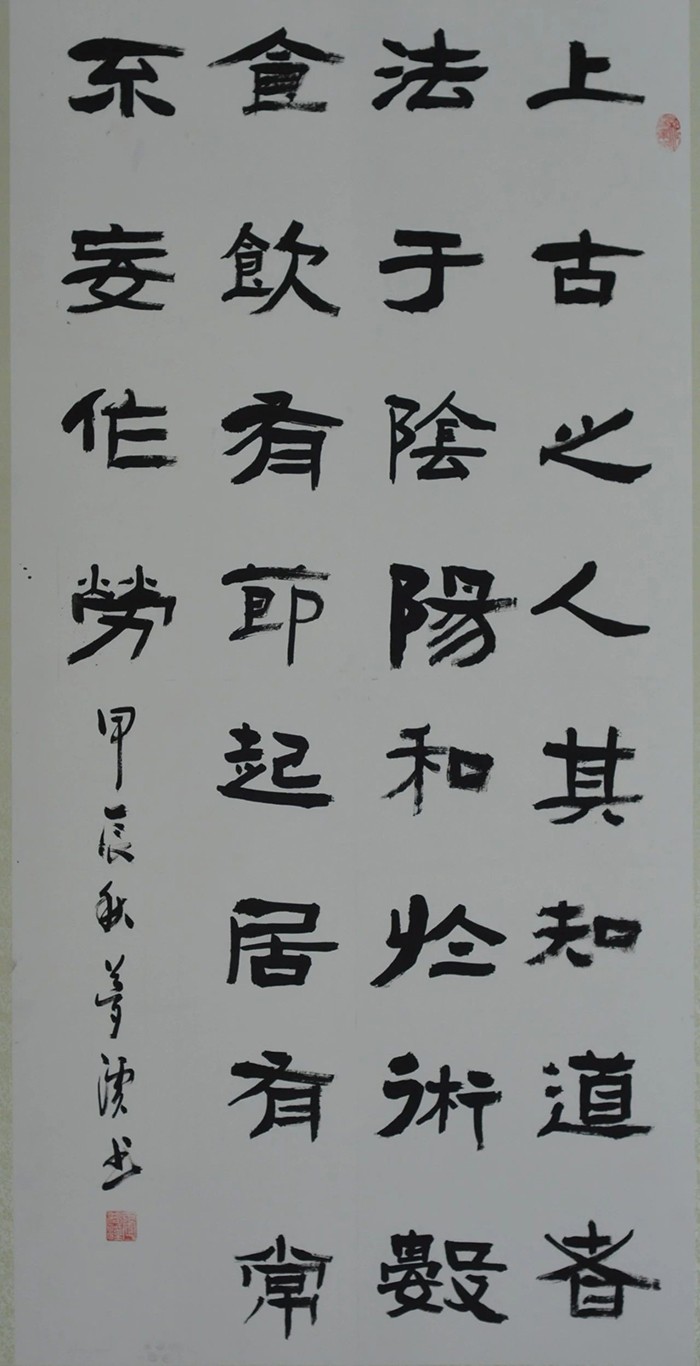 上古之人其知道者
法于陰陽和於術數
食飲有節起居有常
不妄作勞
甲辰秋夢溪书